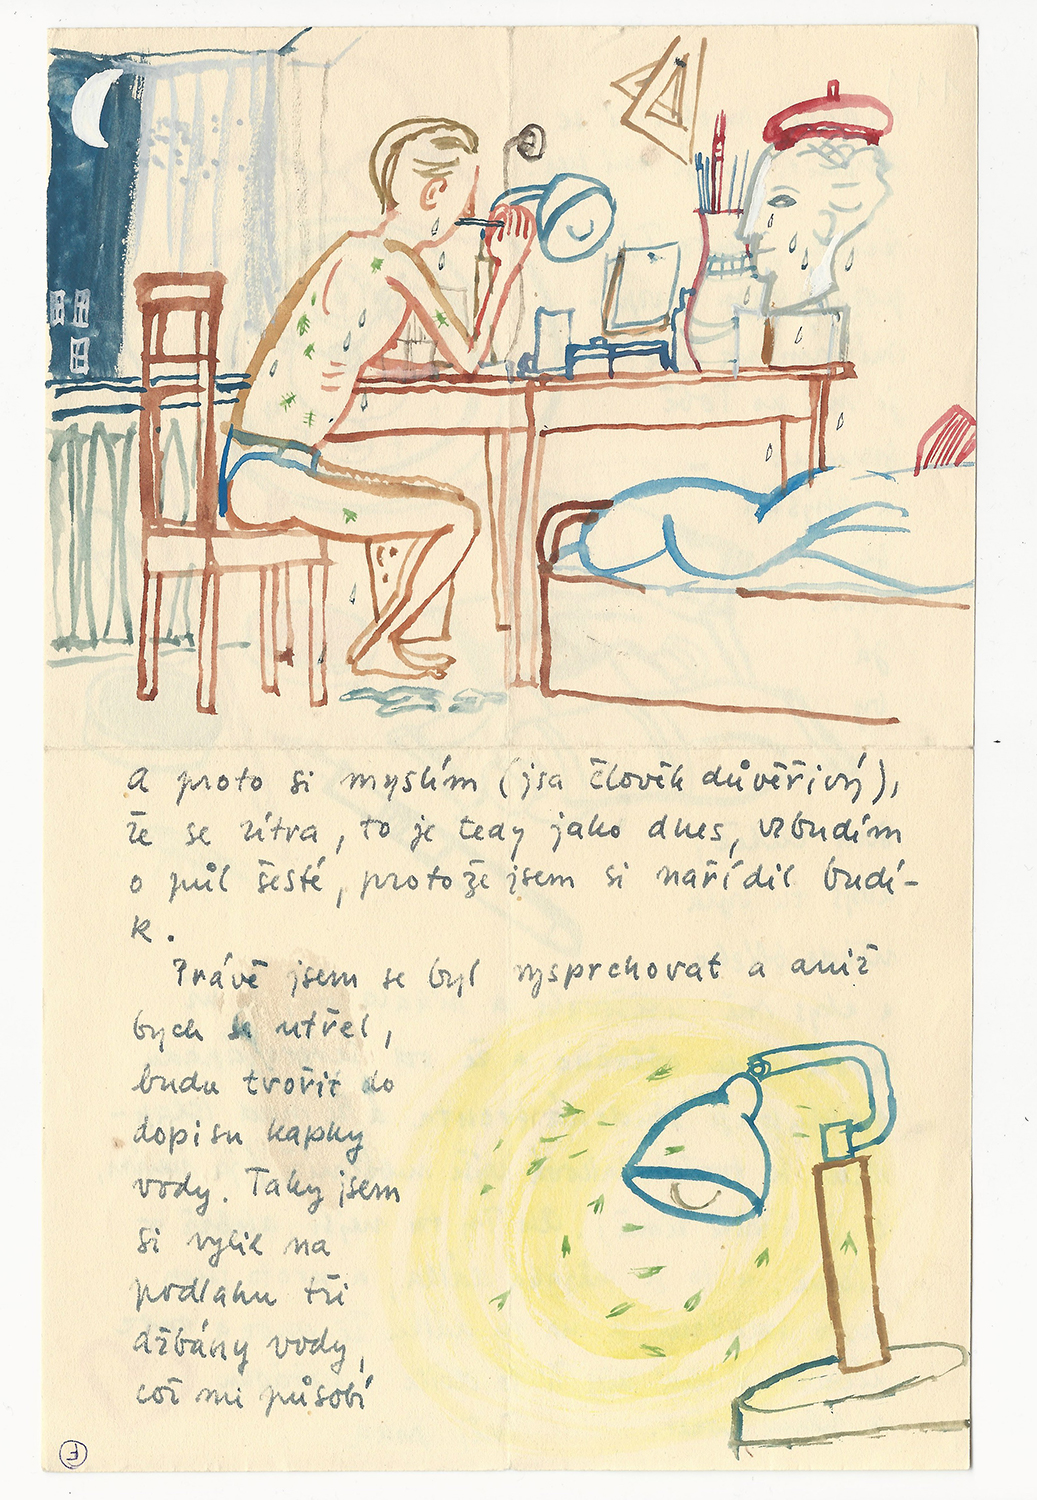 A proto si myslím (jsa člověk důvěřivý),
že se zítra, to je tedy jako dnes, vzbudím
o půl šesté, protože jsem si nařídil budí-
k.
Právě jsem se byl vysprchovat a aniž
bych se utřel,
budu tvořit do
dopisu kapky
vody. Taky jsem
si vylil na
podlahu tři
džbány vody,
což mi působí
F